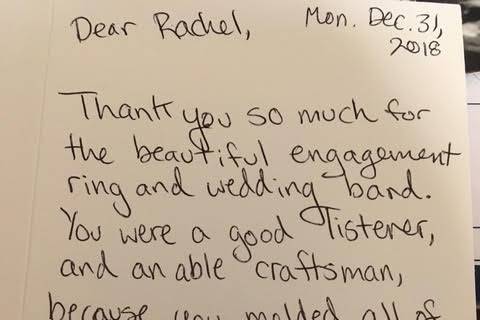 Dear Rachel,
Mon. Dec. 31,
2018
Thank you so much for
the beautiful engagement
ring and wedding band.
You were a good listener,
and an able craftsman,
because you molded all of